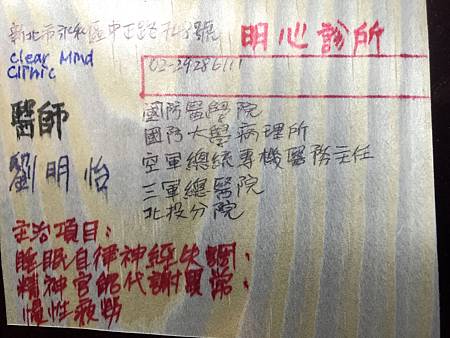 新北市永和區中正路748號
明心診所
Clear Mind
Clinic
02-29286111
醫師
劉明怡
國防醫學院
國防大學病理所
空軍總統專機醫務主任
三軍總醫院
北投分院
主治項目:
睡眠自律神經失調,
精神官能代謝異常,
慢性疲勞